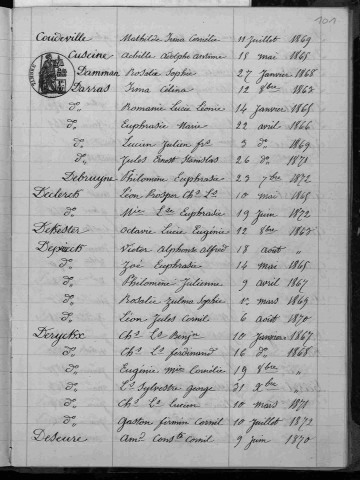 101
Coudeville Mathilde Irma Cornélie 11 Juillet 1869
Cuscine Achille Adolphe Antime 15 mai 1865
Damman Rosalie Sophie 27 Janvier 1868
Darras Irma Célina 12 8bre 1863
do Romanie Lucie Léonie 14 Janvier 1865
do Euphrasie Marie 22 avril 1866
do Lucien Julien fçs 3 do 1869
do Jules Ernest Stanislas 26 do 1871
Debruyne Philomène Euphrasie 23 7bre 1872
Declerck Léon Prosper Chs Ls 10 mai 1865
do Mie Lse Euphrasie 19 Juin 1872
Dekester Octavie Lucie Eugénie 12 8bre 1863
Depriect Victor Alphonse Alfred 18 août "
do Zoé Euphrasie 14 mai 1865
do Philomène Julienne 9 avril 1867
do Rosalie Zulma Sophie 1er mars 1869
do Léon Jules Cornil 6 août 1870
Deryckx Chs Ls Benjn 10 Janvier 1867
do Chs Ls Ferdinand 16 do 1868
do Eugénie Mie Cornélie 19 8bre "
do Ls Sylvestre George 31 Xbre "
do Chs Ls Lucien 10 mars 1871
do Gaston Firmin Cornil 10 Juillet 1872
Deseure Amd Constt Cornil 9 Juin 1870